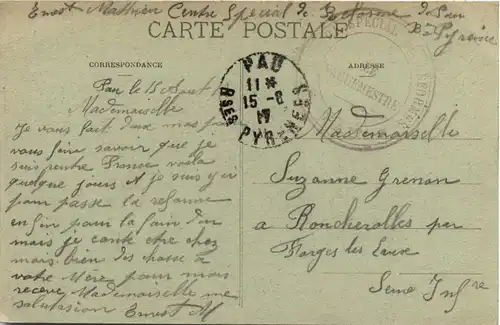 Ernest Mathieu Centre Spécial de Réforme de Pau
Bses Pyrénées
CARTE POSTALE
CORRESPONDANCE
ADRESSE
SPECIAL
PAU
11
15 - 8
17
BSES PYRENEES
Pau le 15 Aout
Mademoiselle
je vous fait deux mots pour
vous faire savoir que je
suis rentre France voila
quelque jours et je suis ici
pour passe la reforme
enfin pour la fain du
mois je conte etre chez
mois bien des chose a
votre Mère pour mois
receve Mademoiselle me
salutasion Ernest M
Mademoiselle
Suzanne Grenon
a Roncherolles par
Forges les Eaux
Seine Infre